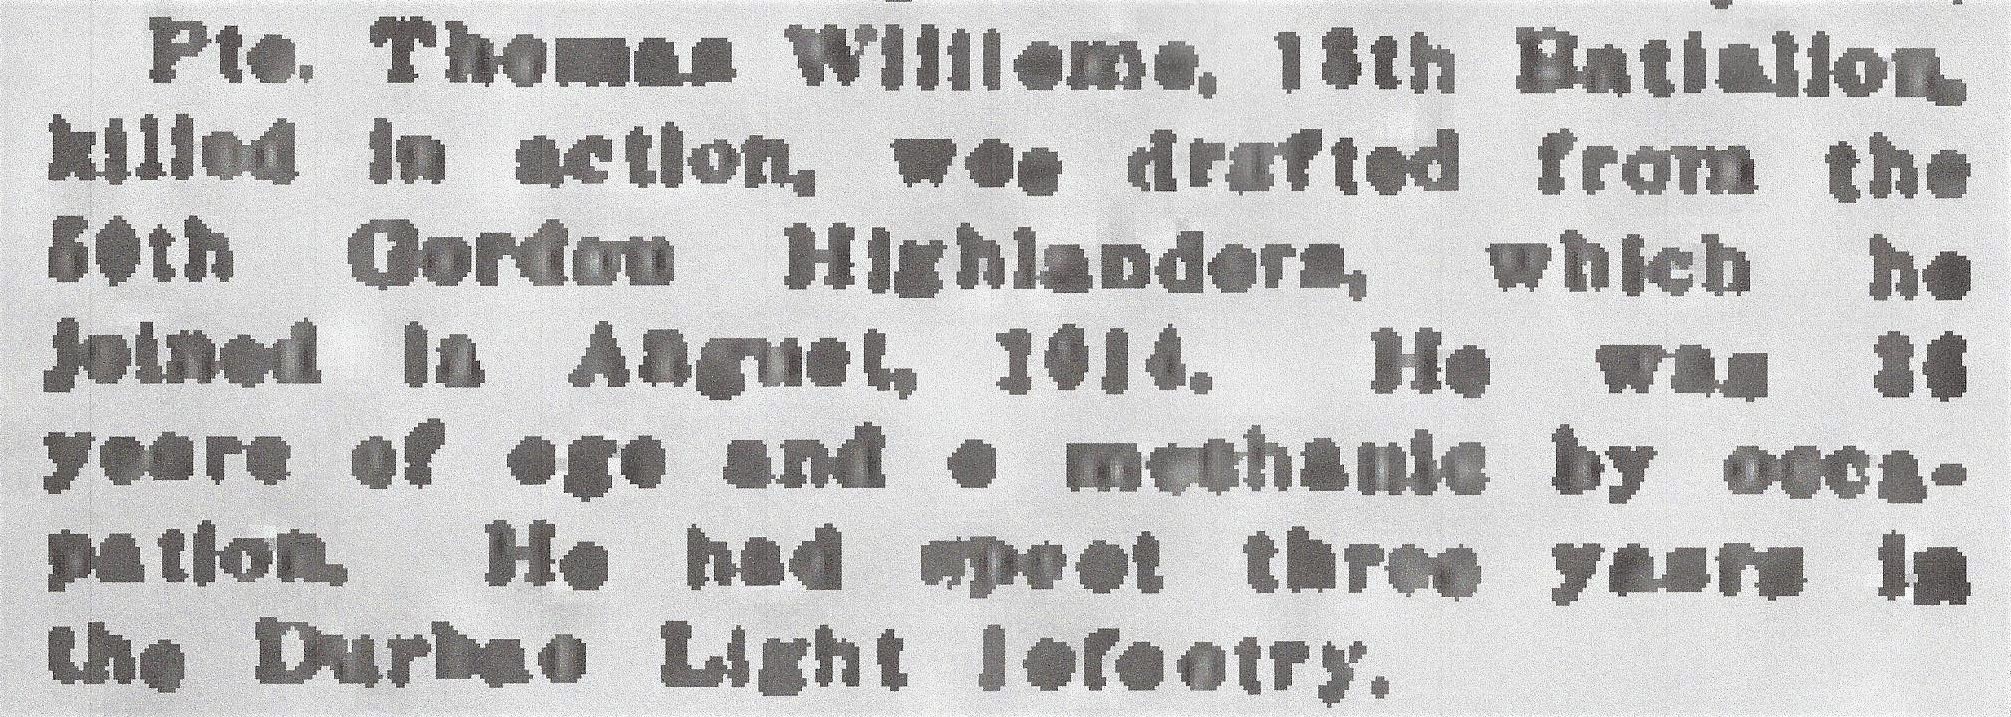 Pte. Thomas Williams, 18th Battalion,
killed in action, was drafted from the
50th Gordon Highlanders, which he
joined in August, 1914. He was 26
years of age and a mechanic by occu-
pation. He had spent three years in
the Durham Light Infantry.